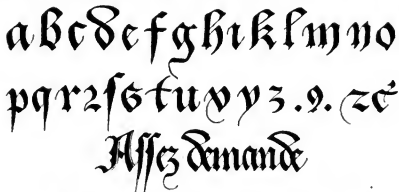 a b c d e f g h i k l m n o
p q r ꝛ ſ s t u v y z . 9 . ꝛc̄
Aſſez demande